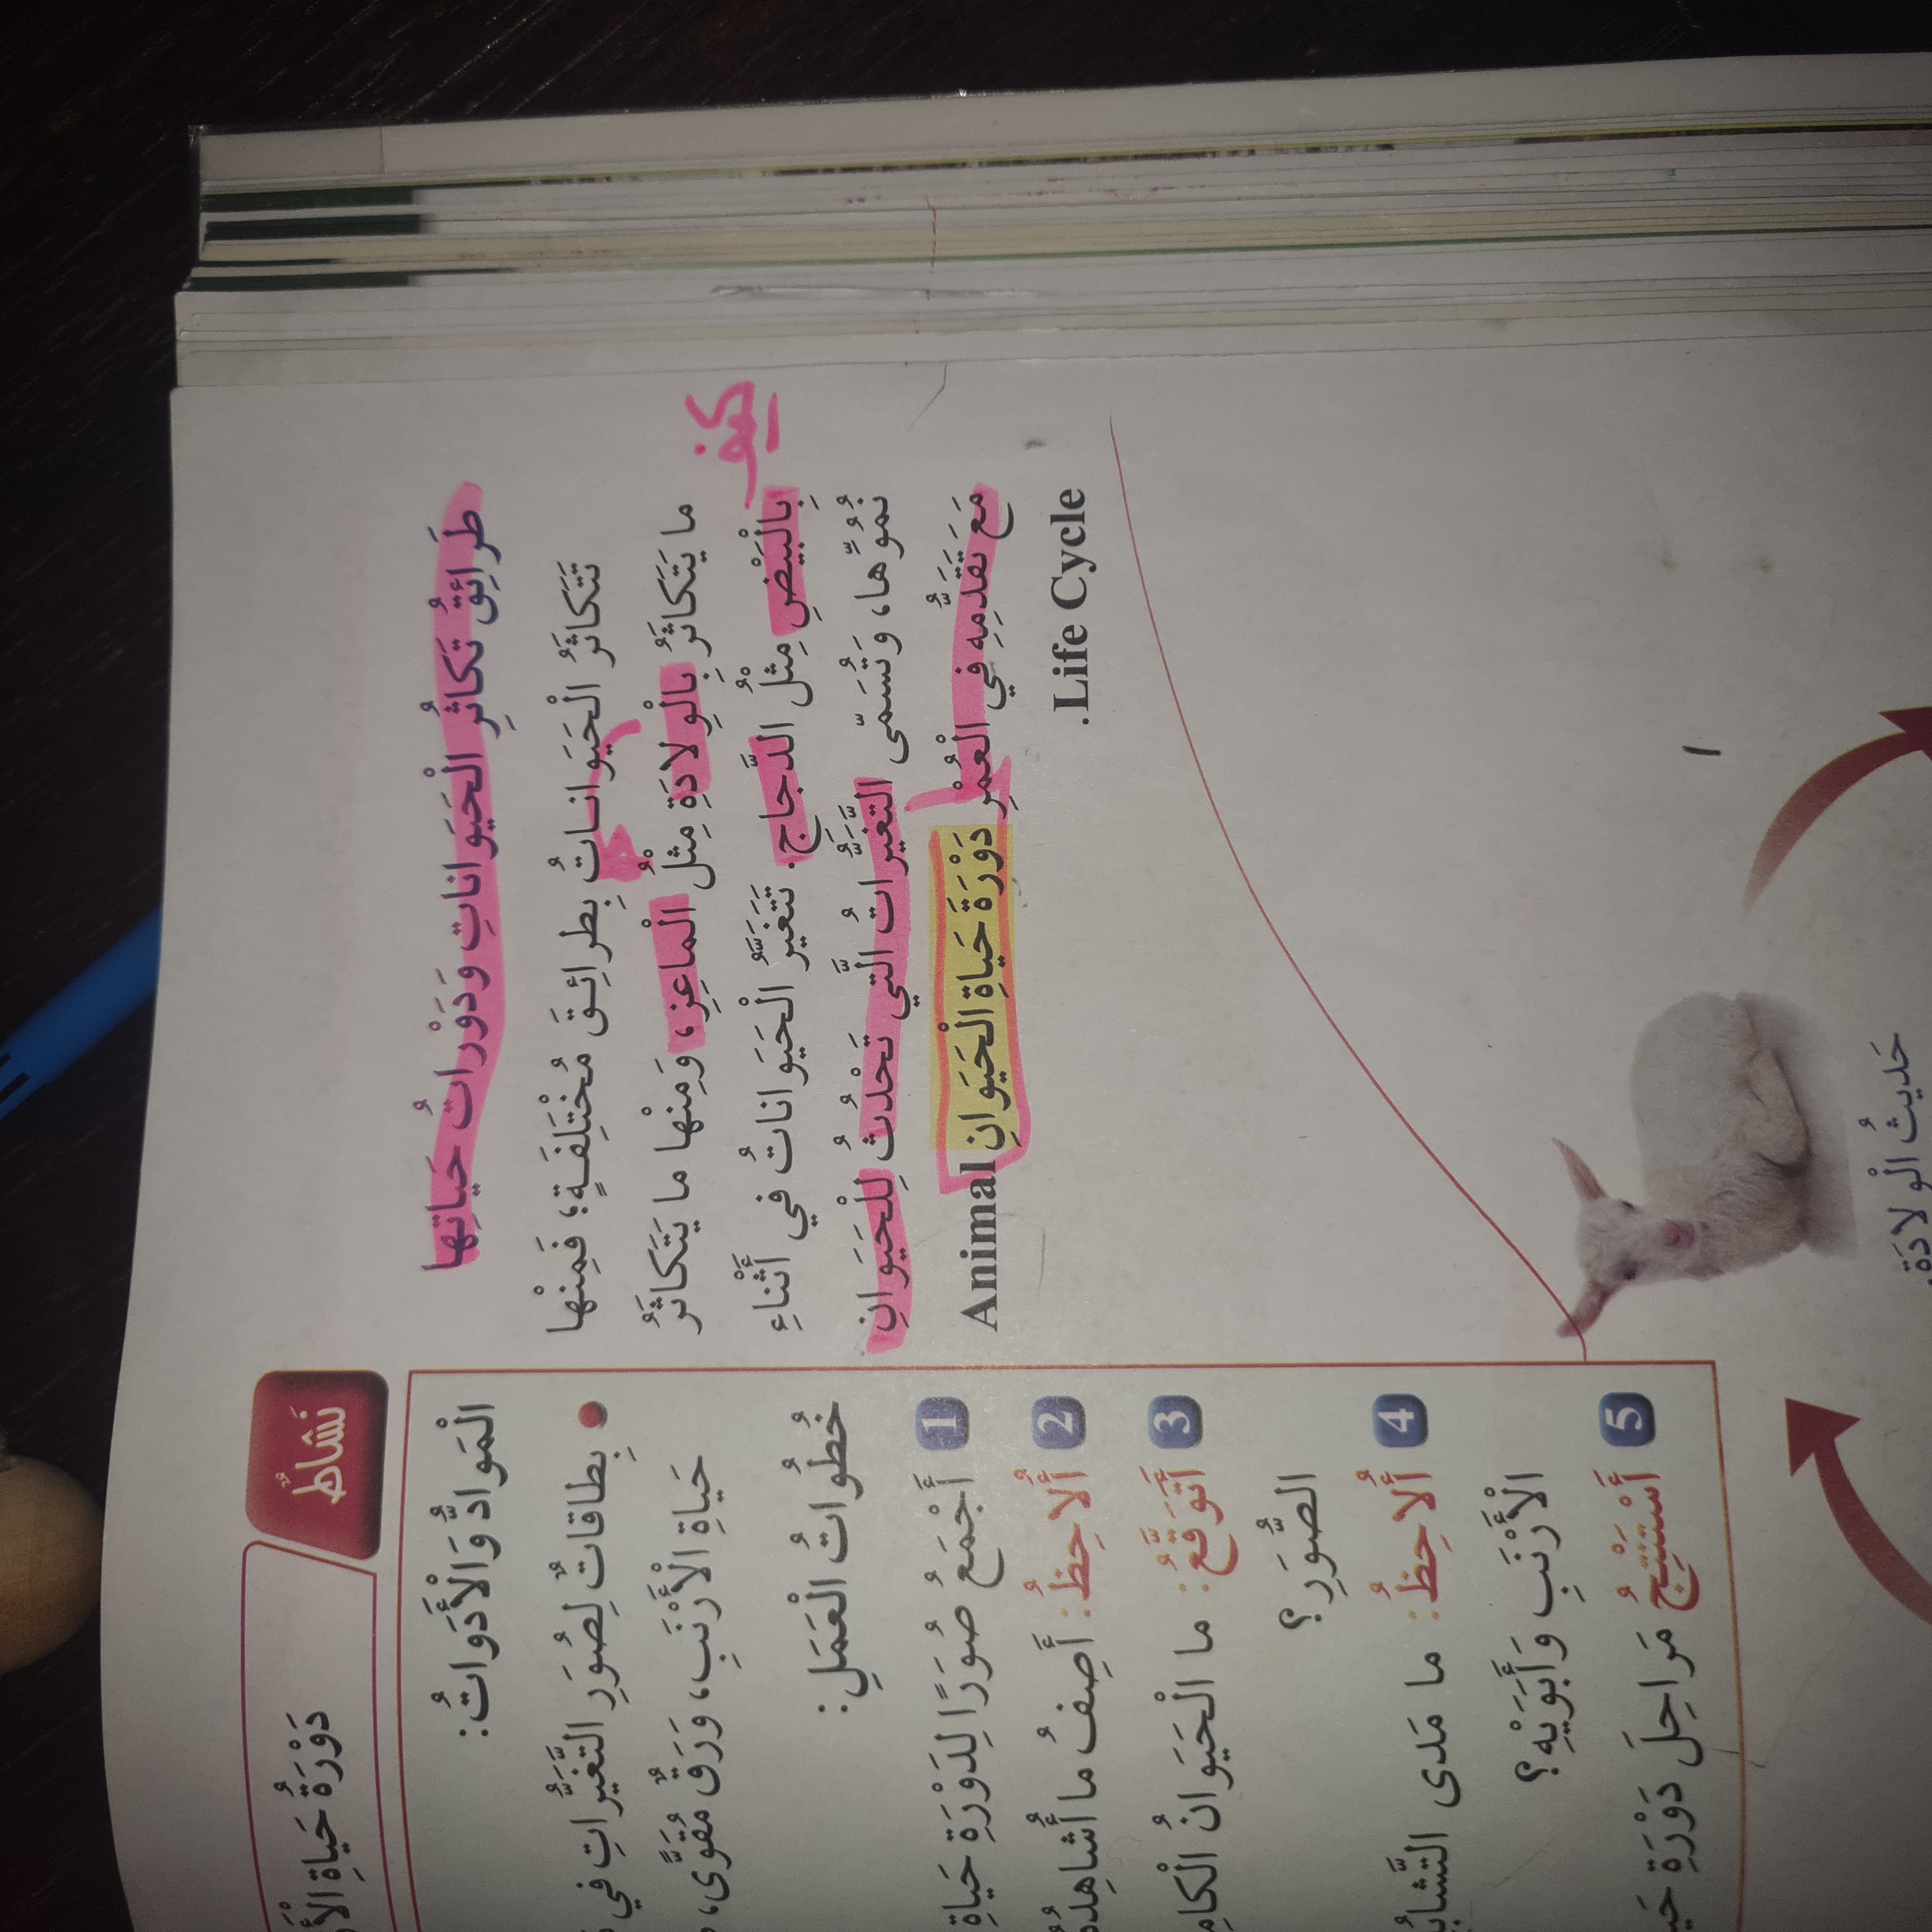 طَرائِقُ تَكاثُرِ الْحَيَواناتِ وَدَوْراتُ حَياتِها
تَتَكاثَرُ الْحَيَواناتُ بِطرائِقَ مُخْتَلِفَةٍ؛ فَمِنْها
ما يَتَكاثَرُ بِالْوِلادَةِ مِثْلُ الْماعِزِ، وَمِنْها ما يَتَكاثَرُ
بِالْبَيْضِ مِثْلُ الدَّجاجِ. تَتَغَيَّرُ الْحَيَواناتُ في أَثْناءِ
كيف
نُمُوِّها، وَتُسَمّى التَّغَيُّراتُ الَّتي تَحْدُثُ لِلْحَيَوانِ
مَعَ تَقَدُّمِهِ في الْعُمُرِ دَوْرَةَ حَياةِ الْحَيَوانِ Animal
Life Cycle.
حَديثُ الْوِلادَةِ
نَشاطٌ
دَوْرَةُ حَياةِ
الْمَوادُّ وَالْأَدَواتُ:
بِطاقاتٌ لِصُوَرِ التَّغَيُّراتِ في
حَياةِ الْأَرْنَبِ، وَرَقٌ مُقَوًّى،
خُطُواتُ الْعَمَلِ:
1 أَجْمَعُ صُوَرًا لِدَوْرَةِ حَياةِ
2 أُلاحِظُ: أَصِفُ ما أُشاهِدُهُ
3 أَتَوَقَّعُ: ما الْحَيَوانُ
الصُّوَرِ؟
4 أُلاحِظُ: ما مَدى
الْأَرْنَبِ وَأَبَوَيْهِ؟
5 أَسْتَنْتِجُ مَراحِلَ دَوْرَةِ